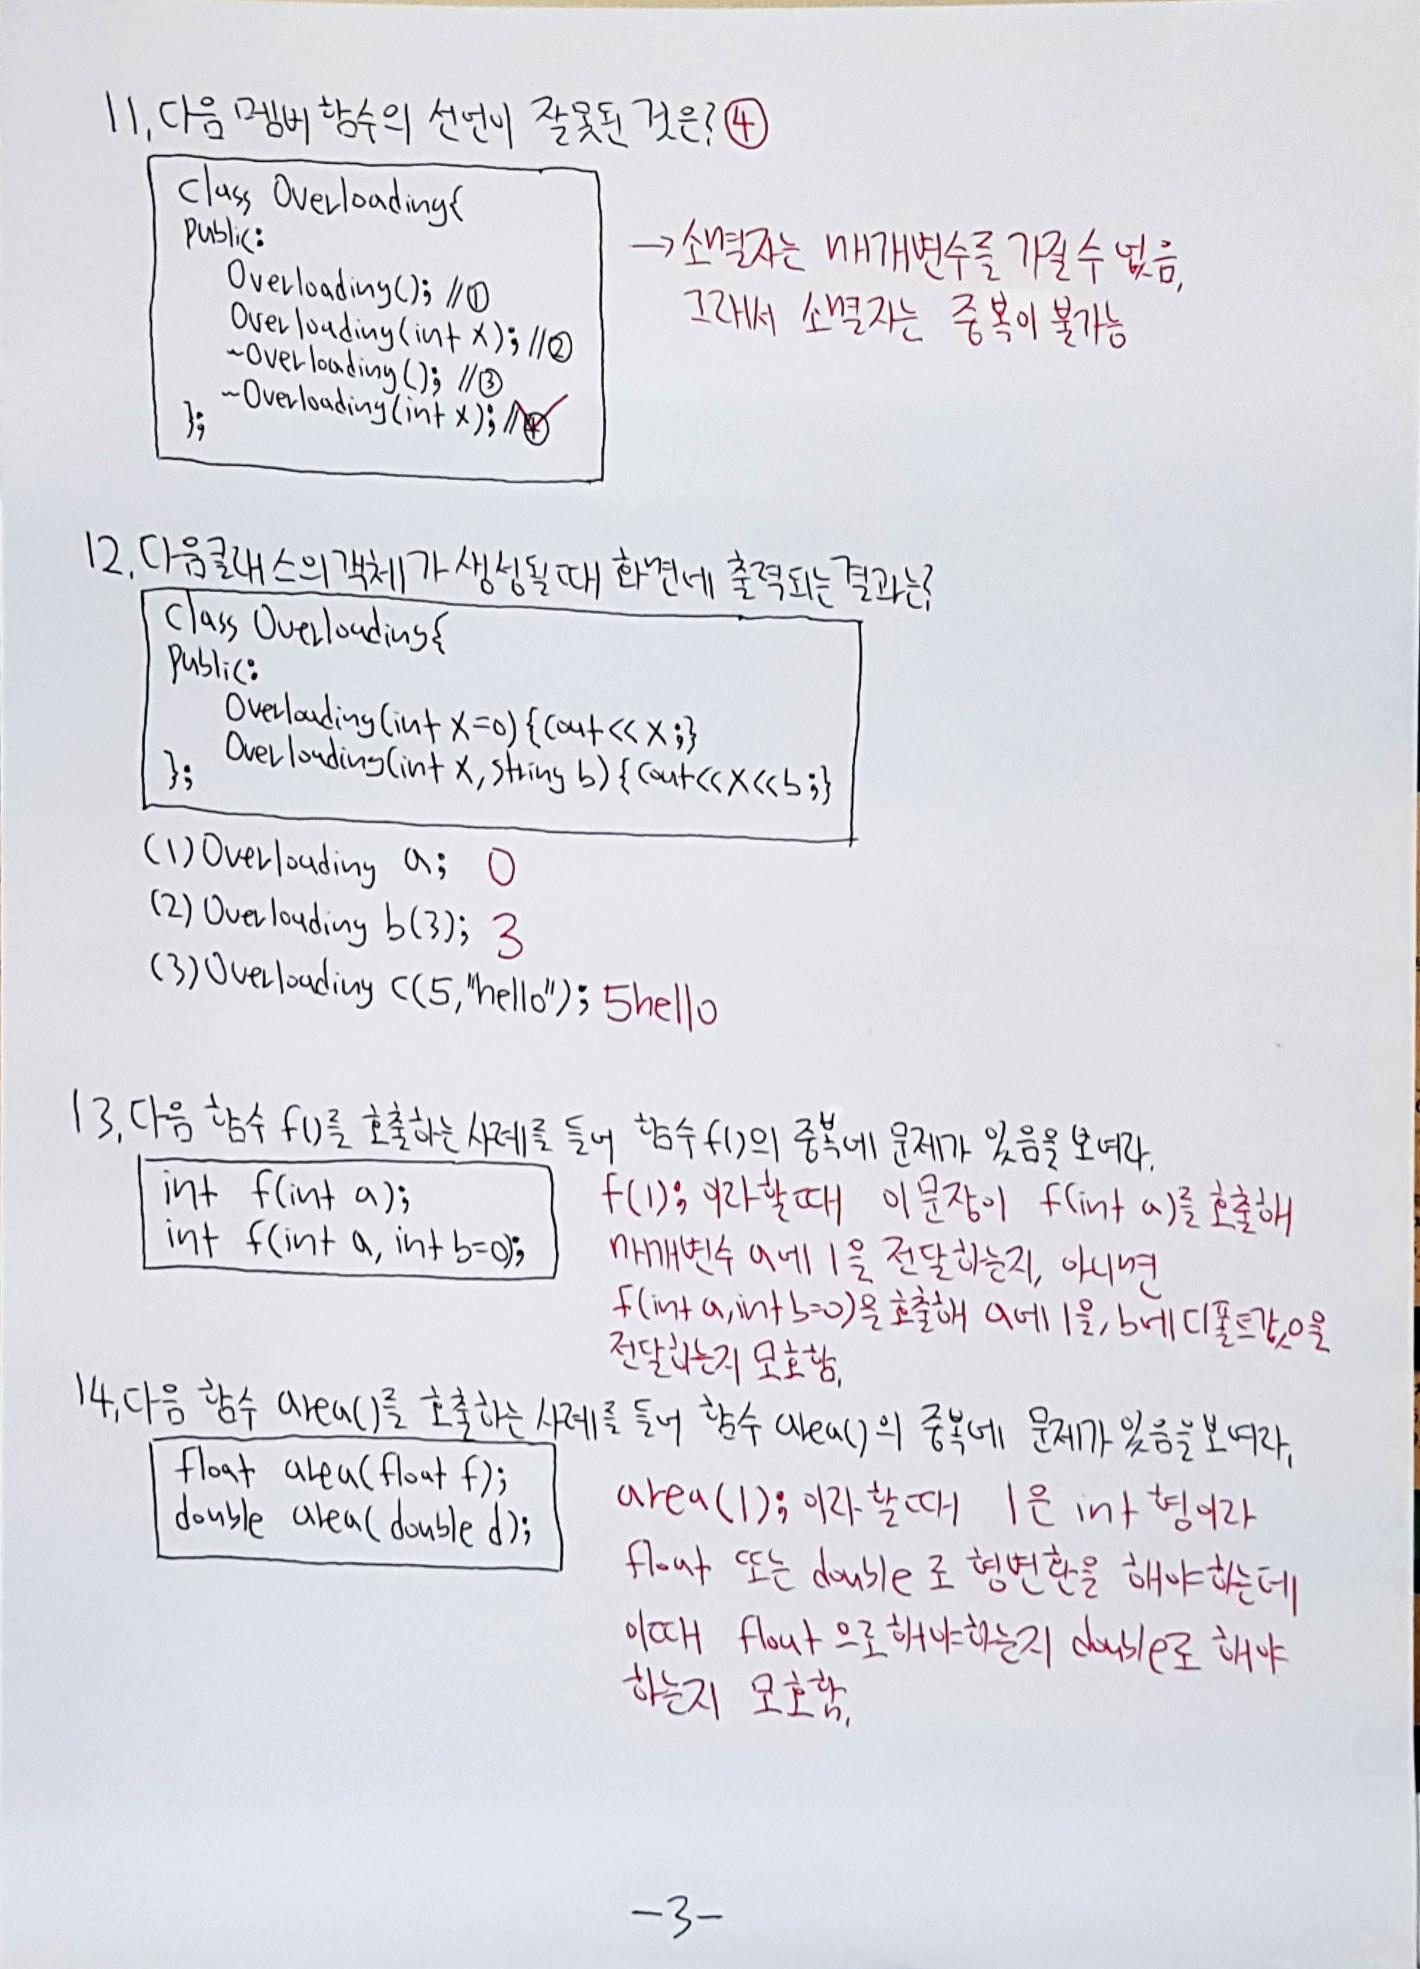 11. 다음 멤버 함수의 선언이 잘못된 것은? ④
class Overloading{
public:
Overloading(); //①
Overloading(int x); //②
~Overloading(); //③
~Overloading(int x); //④
};
→ 소멸자는 매개변수를 가질 수 없음.
그래서 소멸자는 중복이 불가능
12. 다음클래스의 객체가 생성될때 화면에 출력되는 결과는?
class Overloading{
public:
Overloading(int x=0) {cout<<x;}
Overloading(int x, string b) {cout<<x<<b;}
};
(1) Overloading a; 0
(2) Overloading b(3); 3
(3) Overloading c(5,"hello"); 5hello
13. 다음 함수 f()를 호출하는 사례를 들어 함수 f()의 중복에 문제가 있음을 보여라.
int f(int a);
int f(int a, int b=0);
f(1); 이라할때 이 문장이 f(int a)를 호출해
매개변수 a에 1을 전달하는지, 아니면
f(int a, int b=0)을 호출해 a에 1을, b에 디폴트값 0을
전달하는지 모호함.
14. 다음 함수 area()를 호출하는 사례를 들어 함수 area()의 중복에 문제가 있음을 보여라.
float area(float f);
double area(double d);
area(1); 이라 할때 1은 int 형이라
float 또는 double로 형변환을 해야하는데
이때 float으로해야하는지 double로 해야
하는지 모호함.
-3-